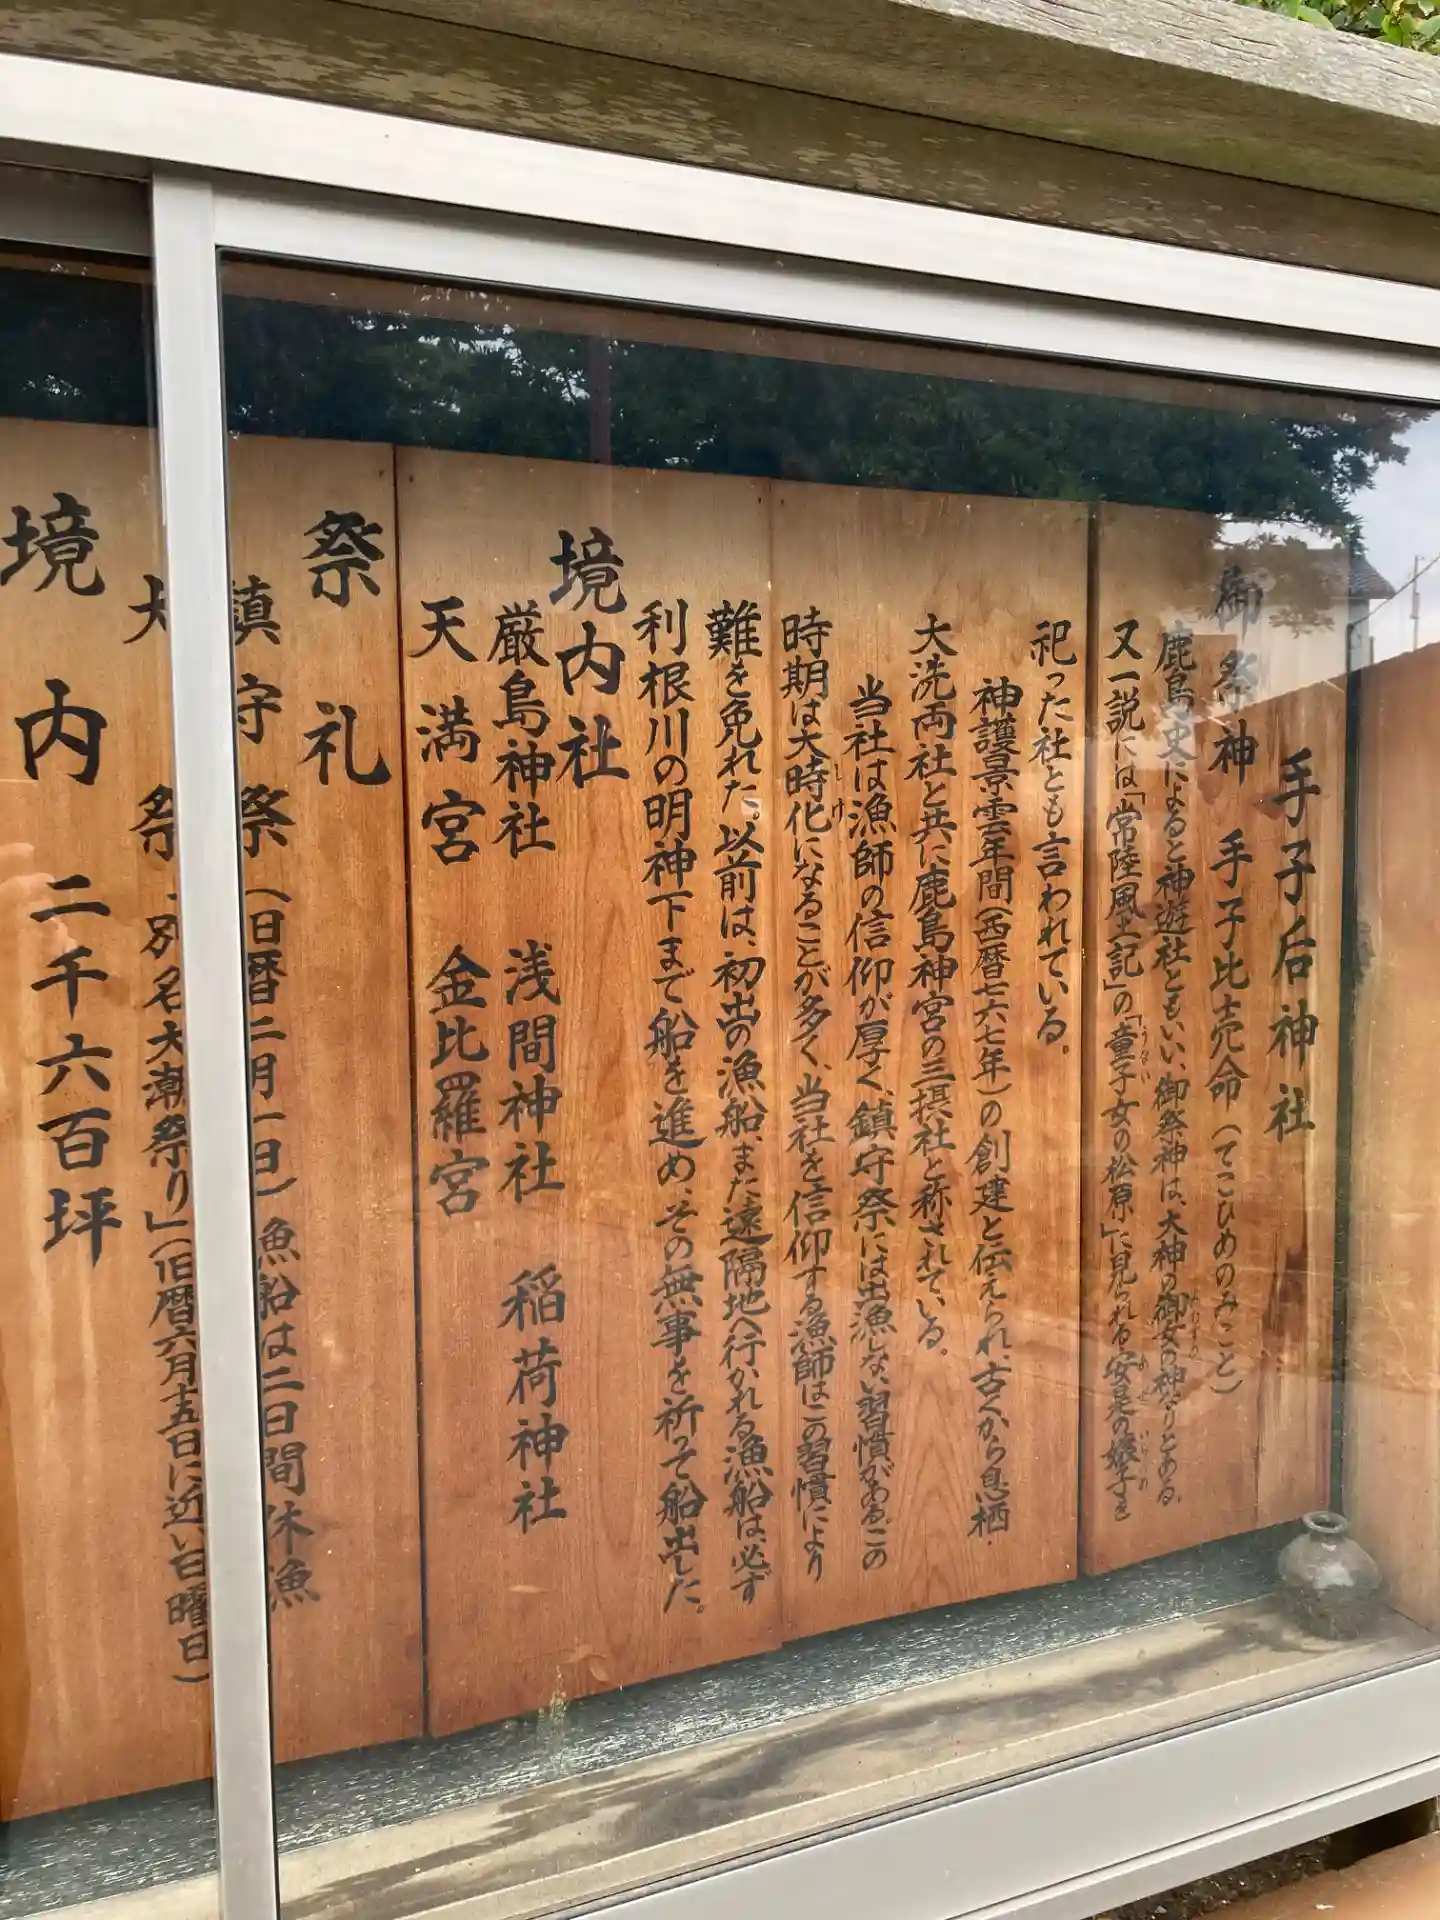 手子后神社
御祭神 手子比売命(てこひめのみこと)
鹿島史によると神遊社ともいい、御祭神は、大神の御女の神なりとある。
又一説には「常陸風土記」の「童子女の松原」に見られる安是の嬢子を
祀った社とも言われている。
神護景雲年間(西暦七六七年)の創建と伝えられ、古くから息栖・
大洗両社と共に鹿島神宮の三摂社と称されている。
当社は漁師の信仰が厚く、鎮守祭には出漁しない習慣がある。この
時期は大時化になることが多く、当社を信仰する漁師はこの習慣により
難を免れた。以前は、初出の漁船、また遠隔地へ行かれる漁船は、必ず
利根川の明神下まで船を進め、その無事を祈って船出した。
境内社
厳島神社 浅間神社 稲荷神社
天満宮 金比羅宮
祭礼
鎮守祭(旧暦二月一日)漁船は二日間休漁
大祭 別名大潮祭り」(旧暦六月十五日に近い日曜日)
境内 二千六百坪